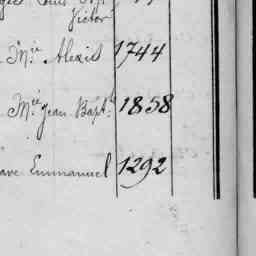 Victor
Mie Alexis 1744
Mie Jean Bapte 1858
Emmanuel 1292